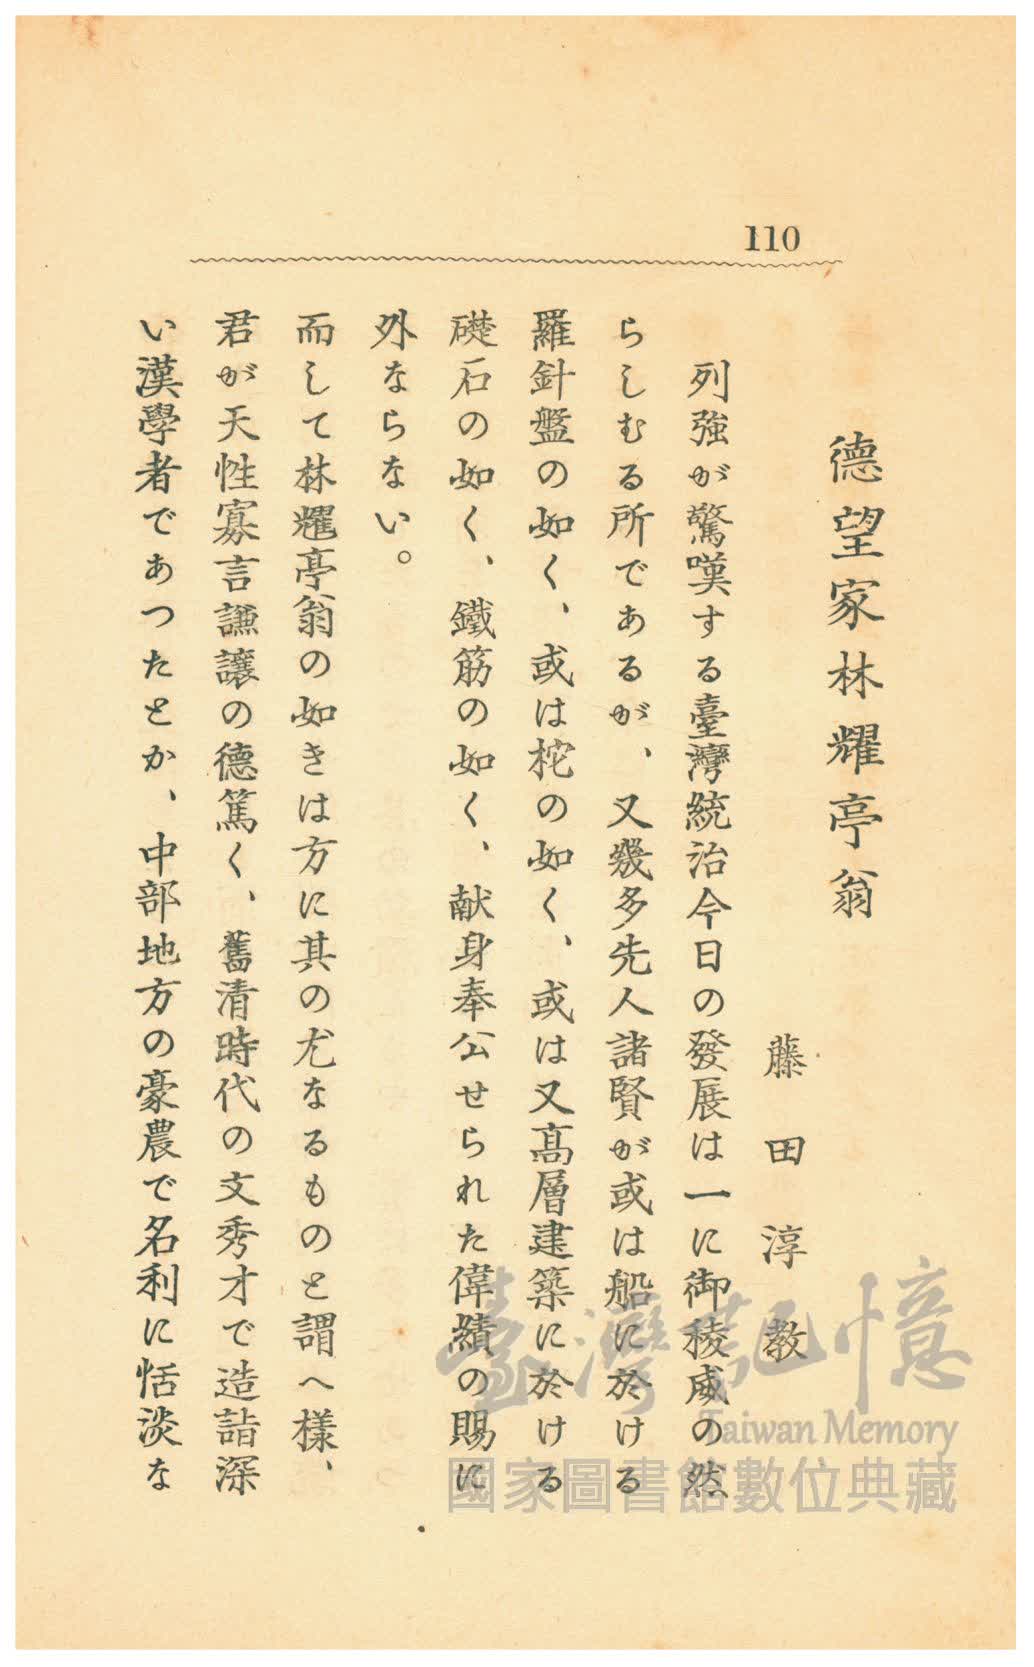 110
德望家林耀亭翁
藤田淳教
列強が驚嘆する臺灣統治今日の發展は一に御稜威の然
らしむる所であるが、又幾多先人諸賢が或は船に於ける
羅針盤の如く、或は柁の如く、或は又高層建築に於ける
礎石の如く、鐵筋の如く、献身奉公せられた偉績の賜に
外ならない。
而して林耀亭翁の如きは方に其の尤なるものと謂へ樣、
君が天性寡言謙讓の德篤く、舊清時代の文秀才で造詣深
い漢學者であつたとか、中部地方の豪農で名利に恬淡な
臺灣記憶
Taiwan Memory
國家圖書館數位典藏